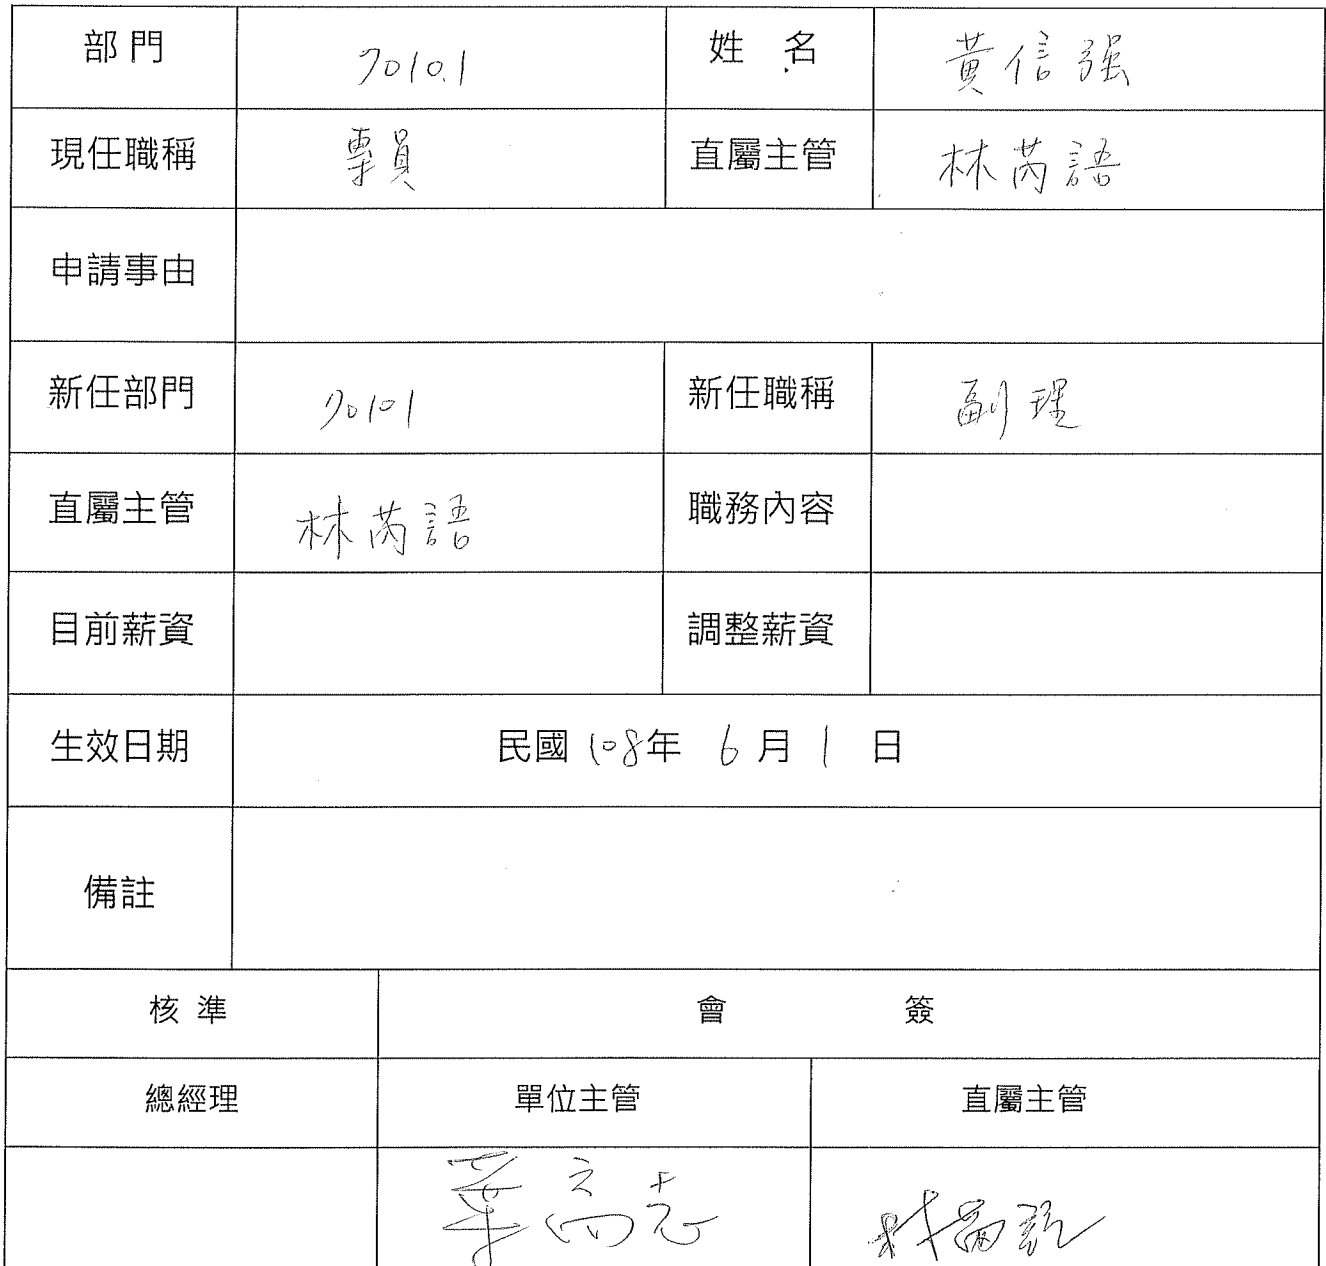 部 門 70101 姓 名 黃信强
現任職稱 專員 直屬主管 林芮語
申請事由
新任部門 70101 新任職稱 副理
直屬主管 林芮語 職務內容
目前薪資 調整薪資
生效日期 民國 108年 6 月 1 日
備註
核 準 會 簽
總經理 單位主管 直屬主管
葉高志 林芮語